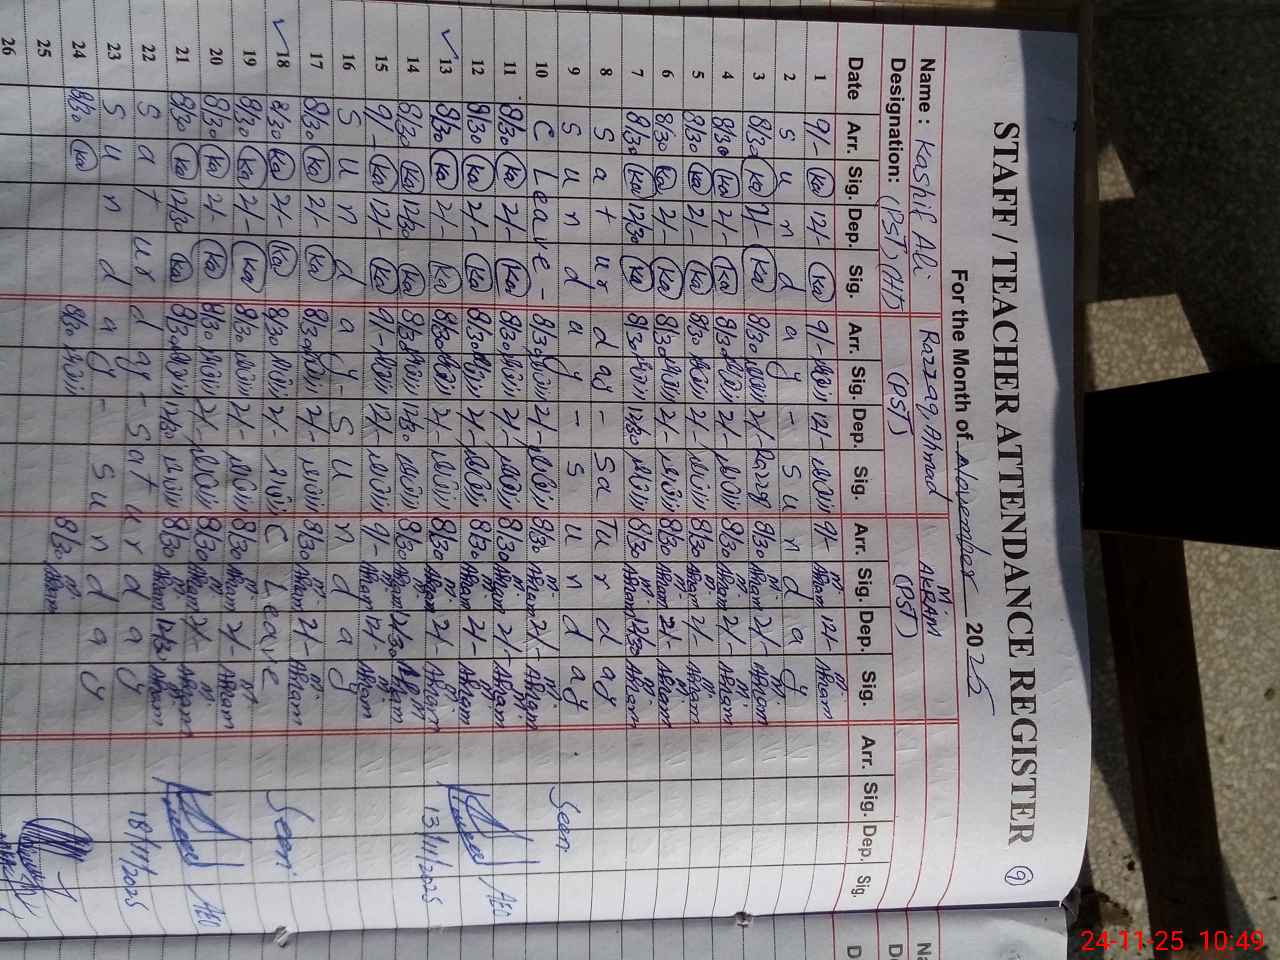 STAFF / TEACHER ATTENDANCE REGISTER 9
For the Month of November 2025
Name : Kashif Ali Razzaq Ahmad M. AKRAM
Designation: (PST) (HT) (PST) (PST)
Date Arr. Sig. Dep. Sig. Arr. Sig. Dep. Sig. Arr. Sig. Dep. Sig. Arr. Sig. Dep. Sig.
1 9/- Ka 12/- Ka 9/- 12/- 9/- M. Akram 12/- M. Akram
2 S u n d a y - S u n d a y
3 8/30 Ka 2/- Ka 8/30 2/- Razzaq 8/30 M. Akram 2/- M. Akram
4 8/30 Ka 2/- Ka 8/30 2/- 8/30 M. Akram 2/- M. Akram
5 8/30 Ka 2/- Ka 8/30 2/- 8/30 M. Akram 2/- M. Akram
6 8/30 Ka 2/- Ka 8/30 2/- 8/30 M. Akram 2/- M. Akram
7 8/30 Ka 12/30 Ka 8/30 12/30 8/30 M. Akram 12/30 M. Akram
8 S a t u r d a y - S a T u r d a y
9 S u n d a y - S u n d a y
10 C Leave - 8/30 2/- 8/30 M. Akram 2/- M. Akram Seen
11 8/30 Ka 2/- Ka 8/30 2/- 8/30 M. Akram 2/- M. Akram
12 8/30 Ka 2/- Ka 8/30 2/- 8/30 M. Akram 2/- M. Akram AEO
13 8/30 Ka 2/- Ka 8/30 2/- 8/30 M. Akram 2/- M. Akram
14 8/30 Ka 12/30 Ka 8/30 12/30 8/30 M. Akram 12/30 M. Akram 13/11/2025
15 9/- Ka 12/- Ka 9/- 12/- 9/- M. Akram 12/- M. Akram
16 S u n d a y - S u n d a y
17 8/30 Ka 2/- Ka 8/30 2/- 8/30 M. Akram 2/- M. Akram
18 8/30 Ka 2/- Ka 8/30 2/- C Leave Seen
19 8/30 Ka 2/- Ka 8/30 2/- 8/30 M. Akram 2/- M. Akram
20 8/30 Ka 2/- Ka 8/30 2/- 8/30 M. Akram 2/- M. Akram AEO
21 8/30 Ka 12/30 Ka 8/30 12/30 8/30 M. Akram 12/30 M. Akram
22 S a t u r d a y - S a t u r d a y 18/11/2025
23 S u n d a y - S u n d a y
24 8/30 Ka 8/30 8/30 M. Akram
25
26
24-11-25 10:49